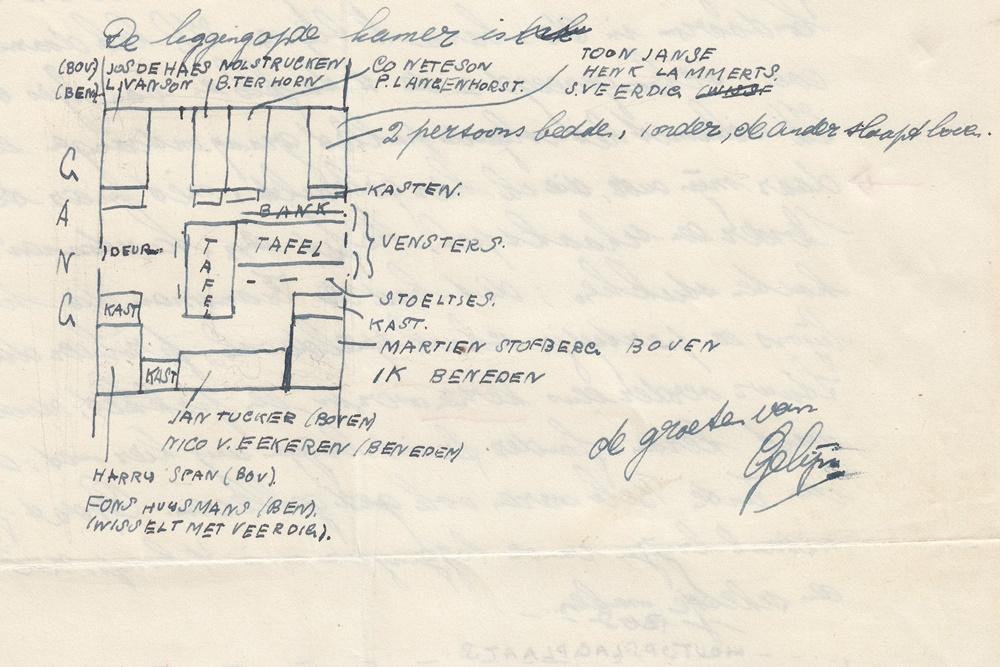 De ligging op de kamer is
(BOV) JOS DE HAES NOL STRUCKEN CO NETESON
(BEN) L. VANSON B. TER HORN P. LANGENHORST.
TOON JANSE
HENK LAMMERTS.
S. VEERDIG
2 persoons bedden, 1 onder, de ander slaapt boven.
KASTEN.
BANK
GANG
DEUR
TAFEL
TAFEL
VENSTERS.
STOELTJES.
KAST
KAST.
MARTIEN STOFBERG BOVEN
IK BENEDEN
KAST
JAN TUCKER (BOVEN)
NICO V. EEKEREN (BENEDEN)
de groeten van
Gelijn
HARRY SPAN (BOV).
FONS HUYSMANS (BEN).
(WISSELT MET VEERDIG).